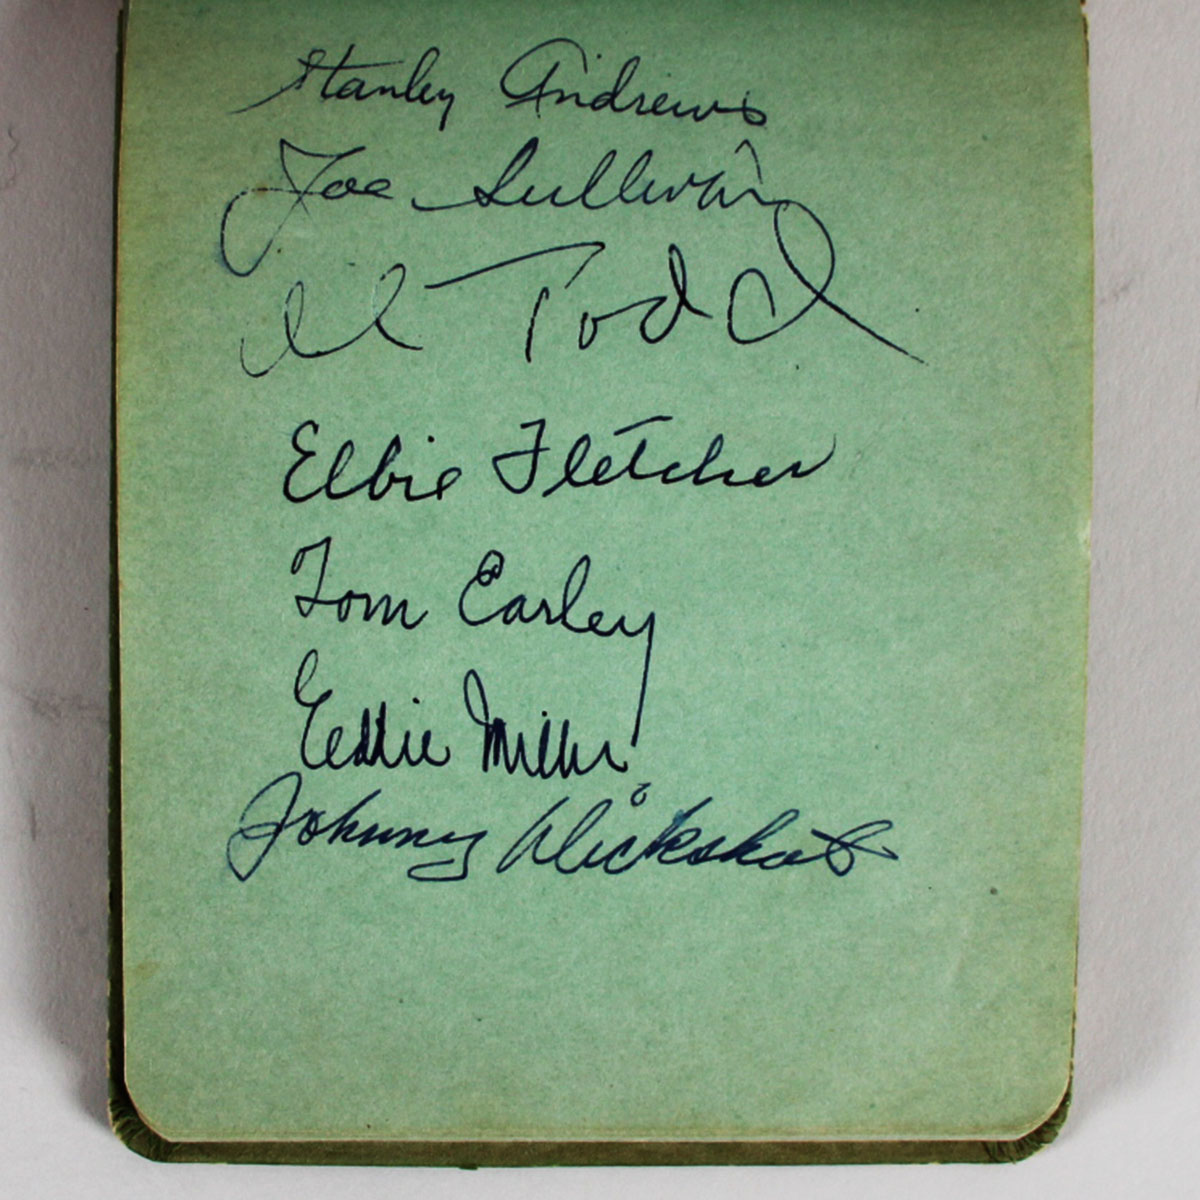 Stanley Andrews
Joe Sullivan
Al Todd
Elbie Fletcher
Tom Earley
Eddie Miller
Johnny Dickshot